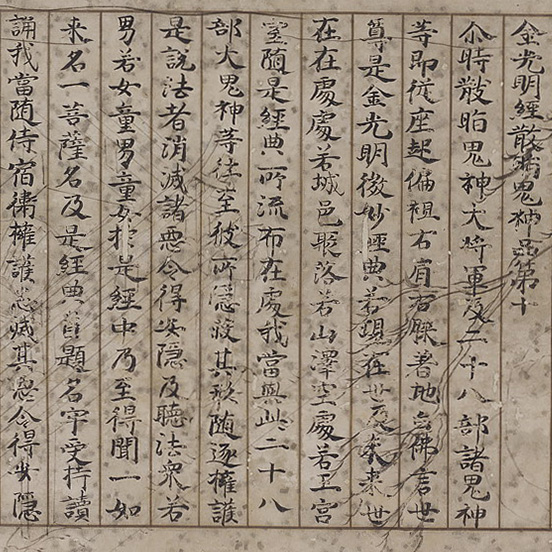 金光明經散脂鬼神品第十
尒時散脂鬼神大將軍及二十八部諸鬼神
等即從座起偏袒右肩右膝著地白佛言世
尊是金光明微妙經典若現在世及未來世
在在處處若城邑聚落若山澤空處若王宮
宅隨是經典所流布在處我當與此二十八
部大鬼神等往至彼所隱蔽其形隨逐擁護
是說法者消滅諸惡令得安隱及聽法衆若
男若女童男童女於是經中乃至得聞一如
来名一菩薩名及是經典首題名字受持讀
誦我當隨侍宿衛擁護悉滅其惡令得安隱